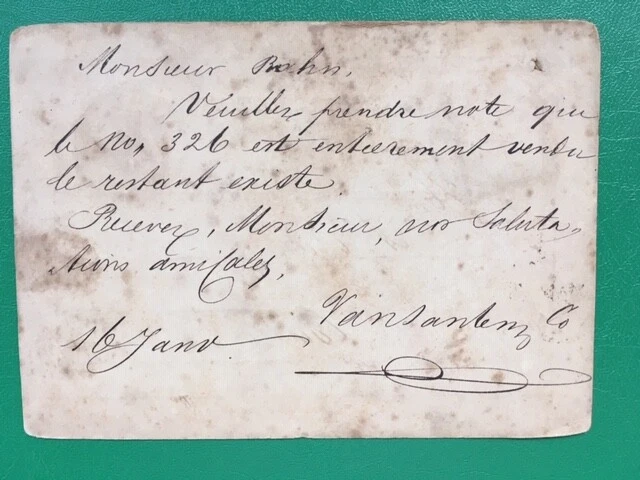 Monsieur Rahn,
Veuillez prendre note que
le no, 326 est entierement vendu
le restant existe.
Recevez, Monsieur, nos Saluta-
tions amicales,
Vansanten Co
16 Janv